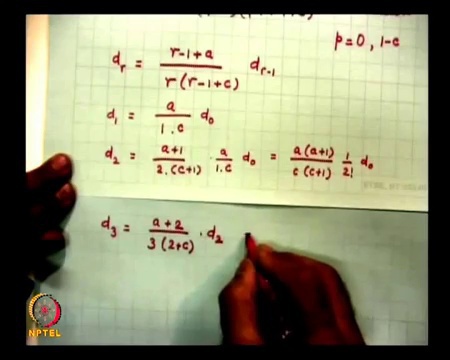 p=0, 1-c
d_r = (r-1+a)/(r(r-1+c)) d_{r-1}
d_1 = a/(1.c) d_0
d_2 = (a+1)/(2.(c+1)) . a/(1.c) d_0 = a(a+1)/(c(c+1)) 1/2! d_0
d_3 = (a+2)/(3(2+c)) . d_2
NPTEL